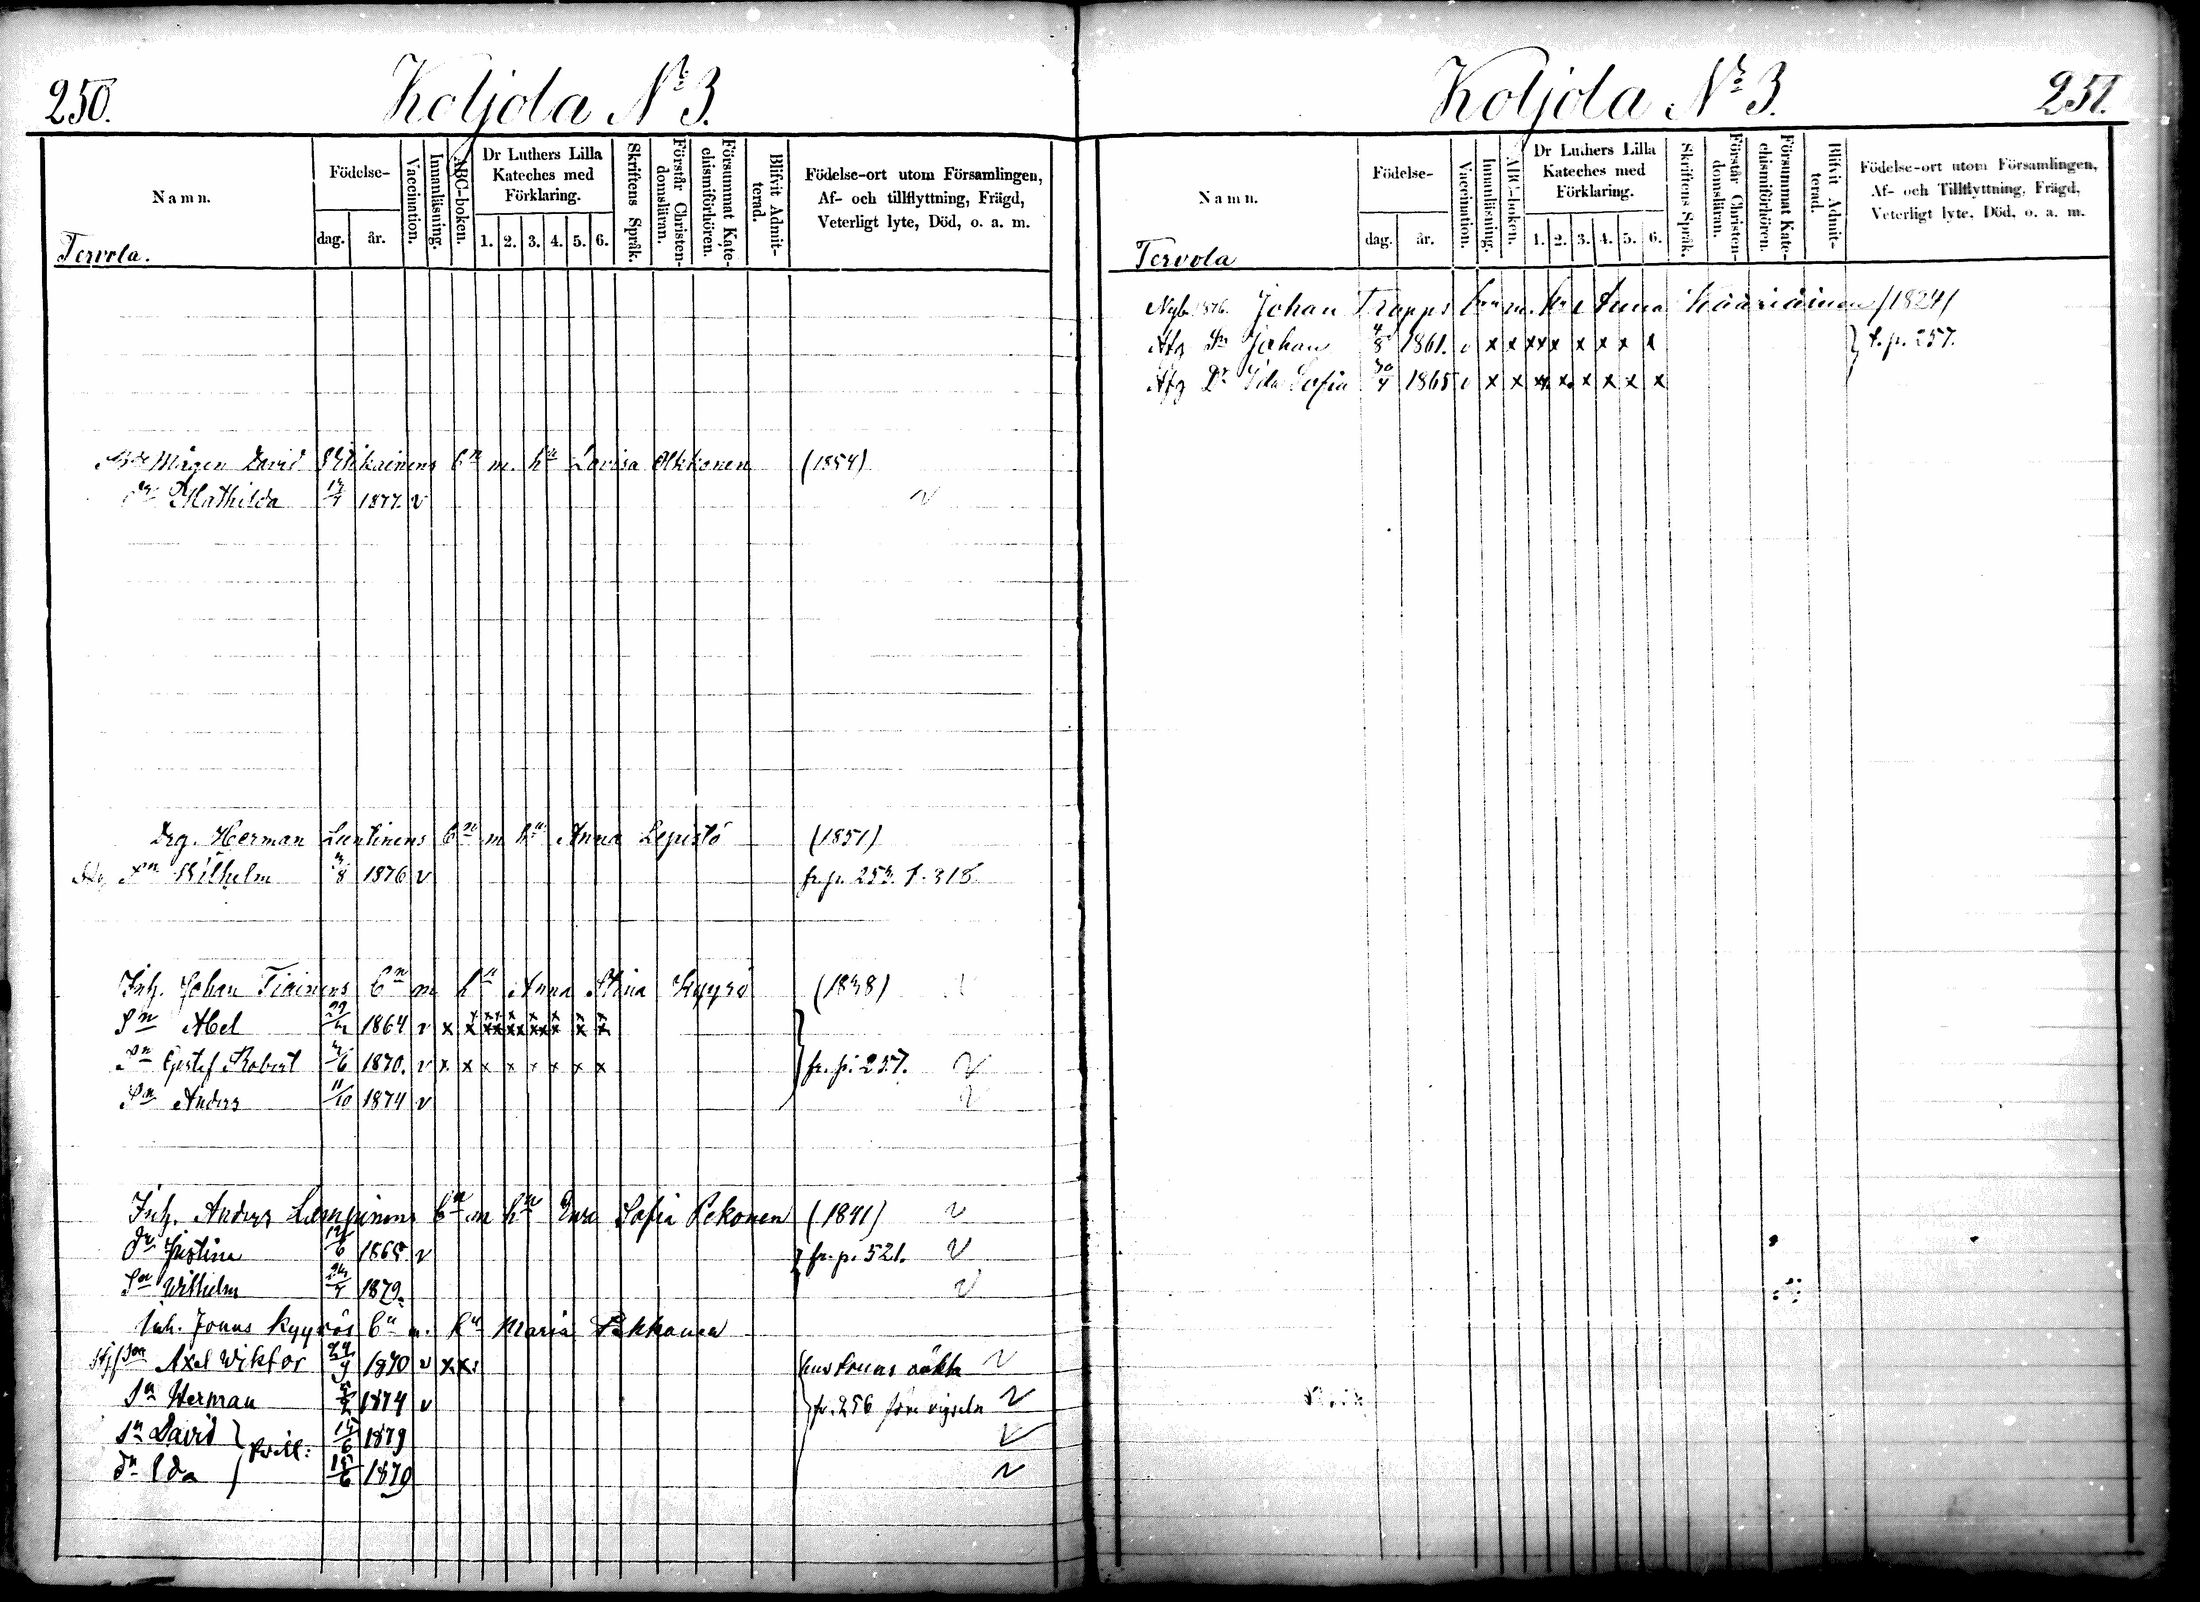 250.
Koljola Nr 3.
Namn.
Födelse-
dag.
år.
Vaccination.
Innanläsning.
ABC-boken.
Dr Luthers Lilla
Kateches med
Förklaring.
1. 2. 3. 4. 5. 6.
Skriftens Språk.
Förstår Christen-
domsläran.
Försummat Kate-
chismiförhören.
Blifvit Admit-
terad.
Födelse-ort utom Församlingen,
Af- och tillflyttning, Frägd,
Veterligt lyte, Död, o. a. m.
Tervola.
Mågen David bn m. hu Lovisa Olkkonen (1854)
dr Mathilda 1877. v
Drg. Herman Luntinens bn m hu Anna Lepistö (1851)
sn Vilhelm 3/8 1876 v fr. p. 253. t. 318
Inh. Johan Tiainens bn m hu Anna Stina Kyyrö (1838)
Sn Abel 1864 v x x
Sn Gustf Robert 1870. v x x x x x x x x fr. p. 257.
Sn Anders 11/10 1874 v
Inh. Anders Lempinens bn m hu Eva Sofia Pekonen (1841)
dr Justina 1865 v fr. p. 521.
Sn Wilhelm 1879.
Inh. Jonas Kyyrös bn m. hu Maria Pekkonen
son Axel Wiktor 1870 v x x
Sn Herman 1874 v fr. 256 före vigseln
Sn David 15/6 1879
dr Ida 15/6 1879
Koljola Nr 3.
251.
Namn.
Födelse-
dag.
år.
Vaccination.
Innanläsning.
ABC-boken.
Dr Luthers Lilla
Kateches med
Förklaring.
1. 2. 3. 4. 5. 6.
Skriftens Språk.
Förstår Christen-
domsläran.
Försummat Kate-
chismiförhören.
Blifvit Admit-
terad.
Födelse-ort utom Församlingen,
Af- och Tillflyttning, Frägd,
Veterligt lyte, Död, o. a. m.
Tervola
Johan Trapps bn m. hu Anna Kääriäinen /1824/
Afg Sn Johan 4/8 1861. v x x x x x x x x t. p. 257.
Afg Dr Ida Sofia 30/4 1865 v x x x x x x x x